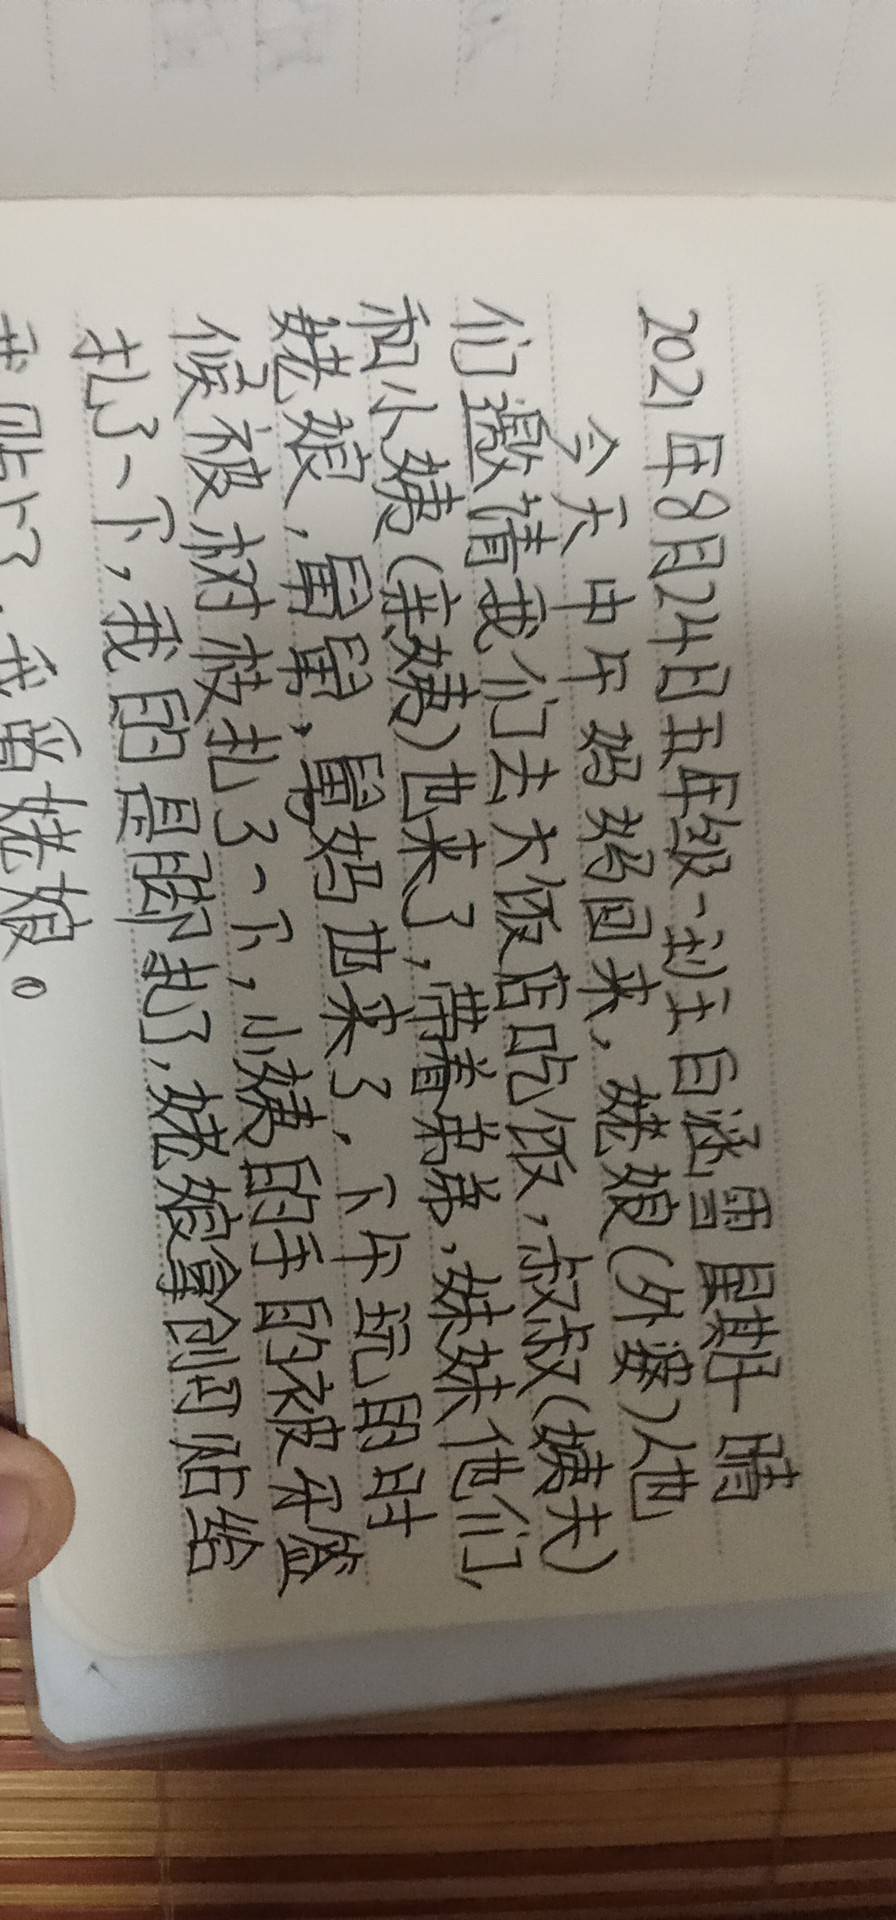 2021年8月24日五年级一刘主白涵雪星期于晴
今天中午妈妈回来，姥娘(外婆)人也
们邀请我们去大饭店吃饭，叔叔(姨夫)
和小姨(亲姨)也来了，带着弟弟，妹妹他们，
姥娘，舅舅，舅妈也来了，下午玩的时
候被树枝扎了一下，小姨的手的被牙签
扎了一下，我的是脚扎了，姥娘拿创可贴给
我贴上了，我当姥娘。